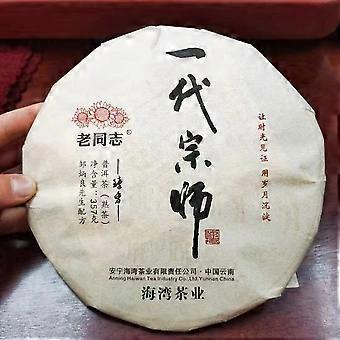 一代宗师
老同志®
普洱茶（熟茶）
净含量：357克
邹炳良先生配方
让时光见证 用岁月沉淀
安宁海湾茶业有限责任公司·中国云南
Anning Haiwan Tea Industry Co.,Ltd.Yunnan China
海湾茶业